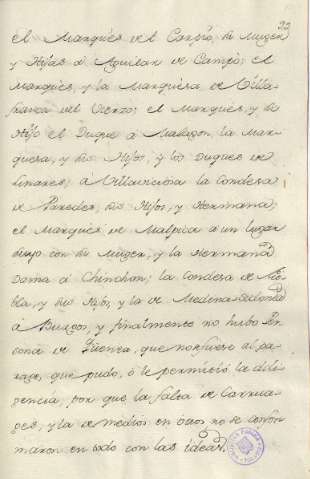 22
el Marquès del Carpio, su Muger
y Hijas à Aguilar de Campò; el
Marquès, y la Marquesa de Villa-
franca del Vierzo; el Marquès, y su
Hijo el Duque à Malagon, la Mar-
quesa, y sus Hijos, y los Duques de
Linares; à Villaviciosa la Condesa
de Paredes, sus Hijos, y Hermana;
el Marquès de Malpica à un lugar
suyo con su Muger, y la Hermana
Dama à Chinchon; la Condesa de Nie-
bla, y sus Hijos, y la de Medina-Sidonia
à Burgos, y finalmente no hubo Per-
sona de que no fuese al pa-
raje, que pudo, ò le permitiò la dili-
gencia, por que la falta de Carrua-
ges, y la de medios en otros no se confor-
maron en todo con las ideas.